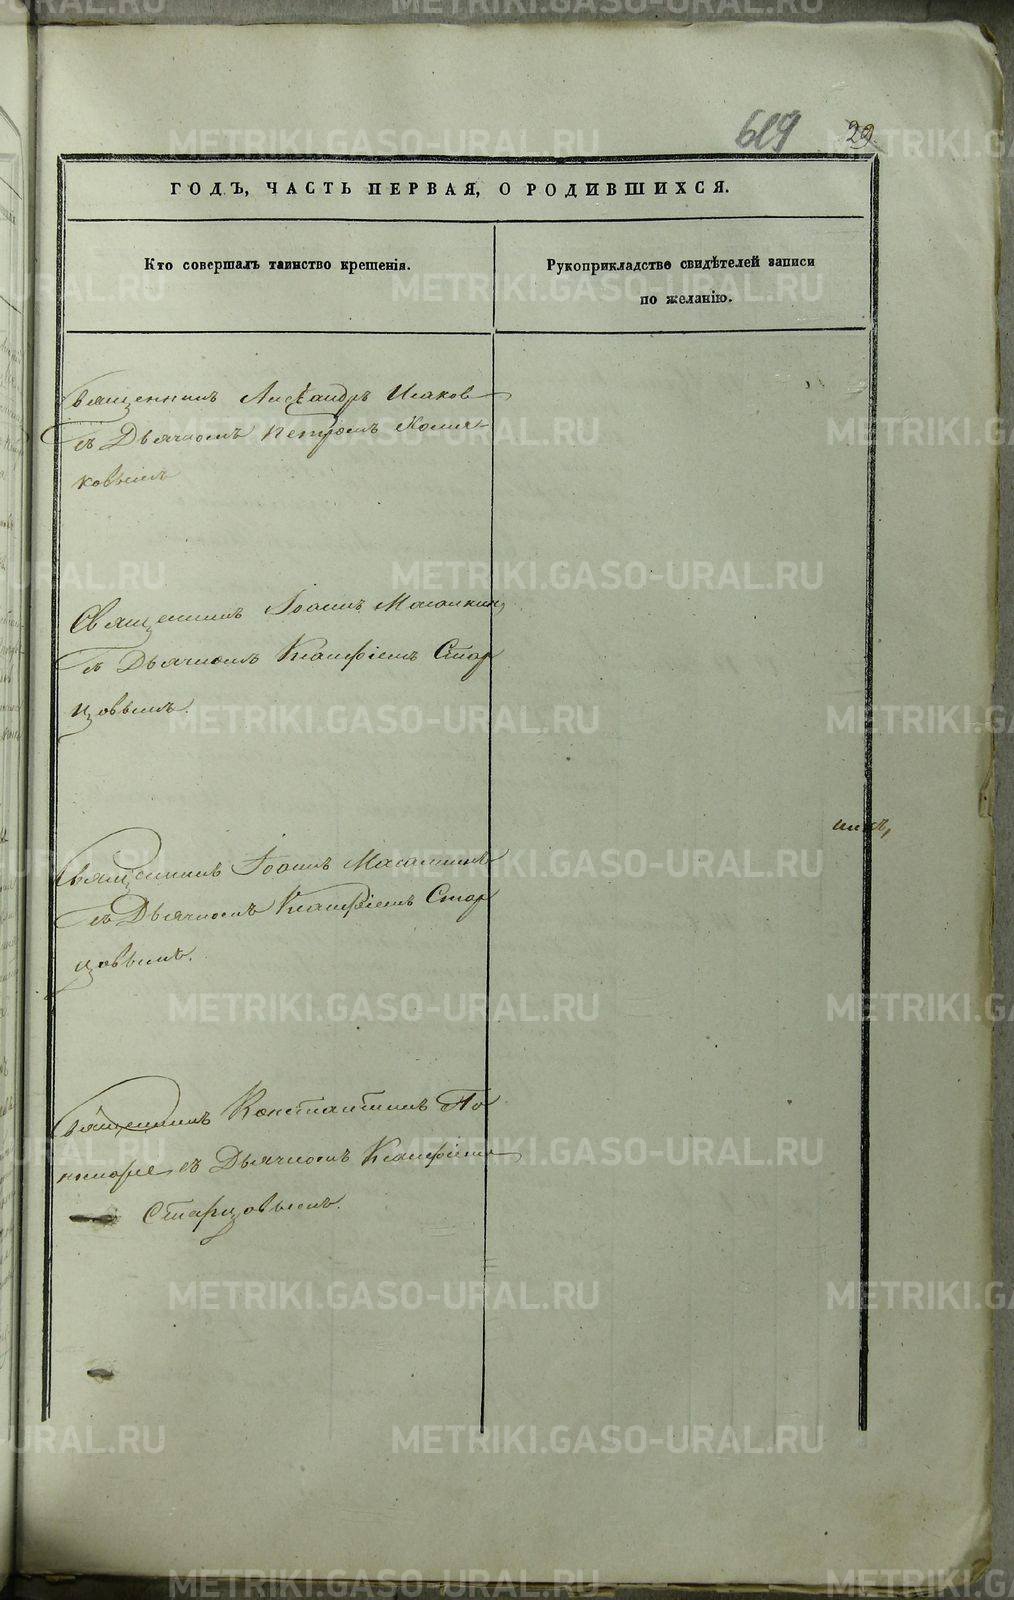 619 29
ГОДЪ, ЧАСТЬ ПЕРВАЯ, О РОДИВШИХСЯ.
Кто совершалъ таинство крещенія.
Рукоприкладство свидѣтелей записи
по желанію.
Священникъ Александръ Исаков
съ Дьячкомъ Петромъ Хомя-
ковымъ
Священникъ Іоаннъ
съ Дьячкомъ Стар
цовымъ.
Священникъ Іоаннъ
съ Дьячкомъ Стар
цовымъ.
Священникъ Константинъ По
номаре съ Дьячкомъ
Старцовымъ.
METRIKI.GASO-URAL.RU